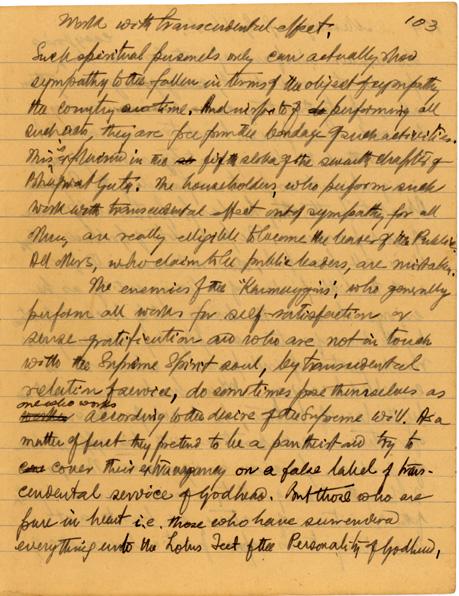 Work with transcendental effect.
103
Such spiritual personels only can actually show
sympathy to the fallen in terms of the object of sympathy
the country and time. And inspite of performing all
such acts, they are free from the bondage of such activities.
This is in the fifth sloka of the seventh chapter of
Bhagwat Geeta. The householders, who perform such
work with transcendental effect out of sympathy for all
Men, are really elligible to become the leader of the Public.
All others, who claim to be public leaders, are mistaken.
The enemies of the 'Karmayogins', who generally
perform all works for self-satisfaction or
sense-gratification and who are not in touch
with the Supreme Spirit soul, by transcendental
relation of service, do sometimes pose themselves as
works
According to the desire of the Supreme Will. As a
matter of fact they pretend to be a pantheist and try to
cover their extravagancy on a false label of trans-
cendental service of Godhead. But those who are
pure in heart i.e. those who have surrendered
everything unto the Lotus Feet of the Personality of Godhead,